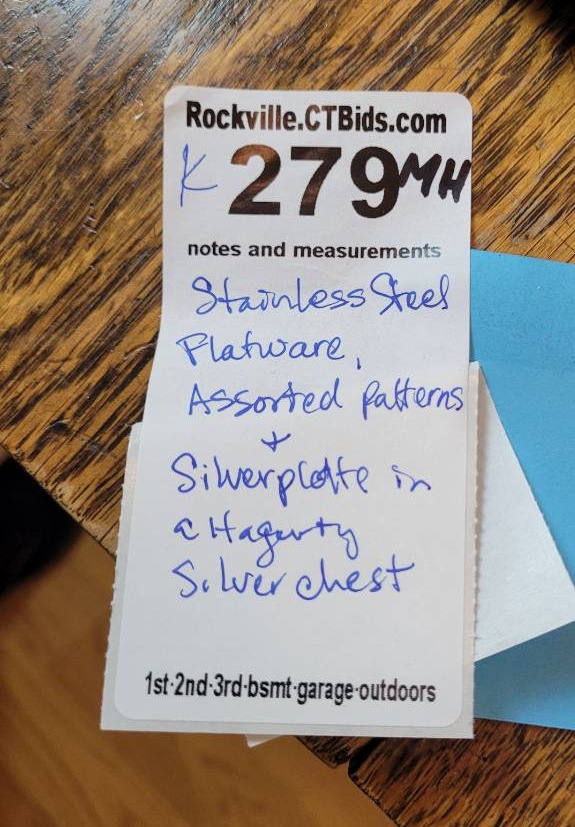 Rockville.CTBids.com
K 279 MH
notes and measurements
Stainless Steel
Flatware,
Assorted patterns
+
Silverplate in
a Hagerty
Silver chest
1st·2nd·3rd·bsmt·garage·outdoors